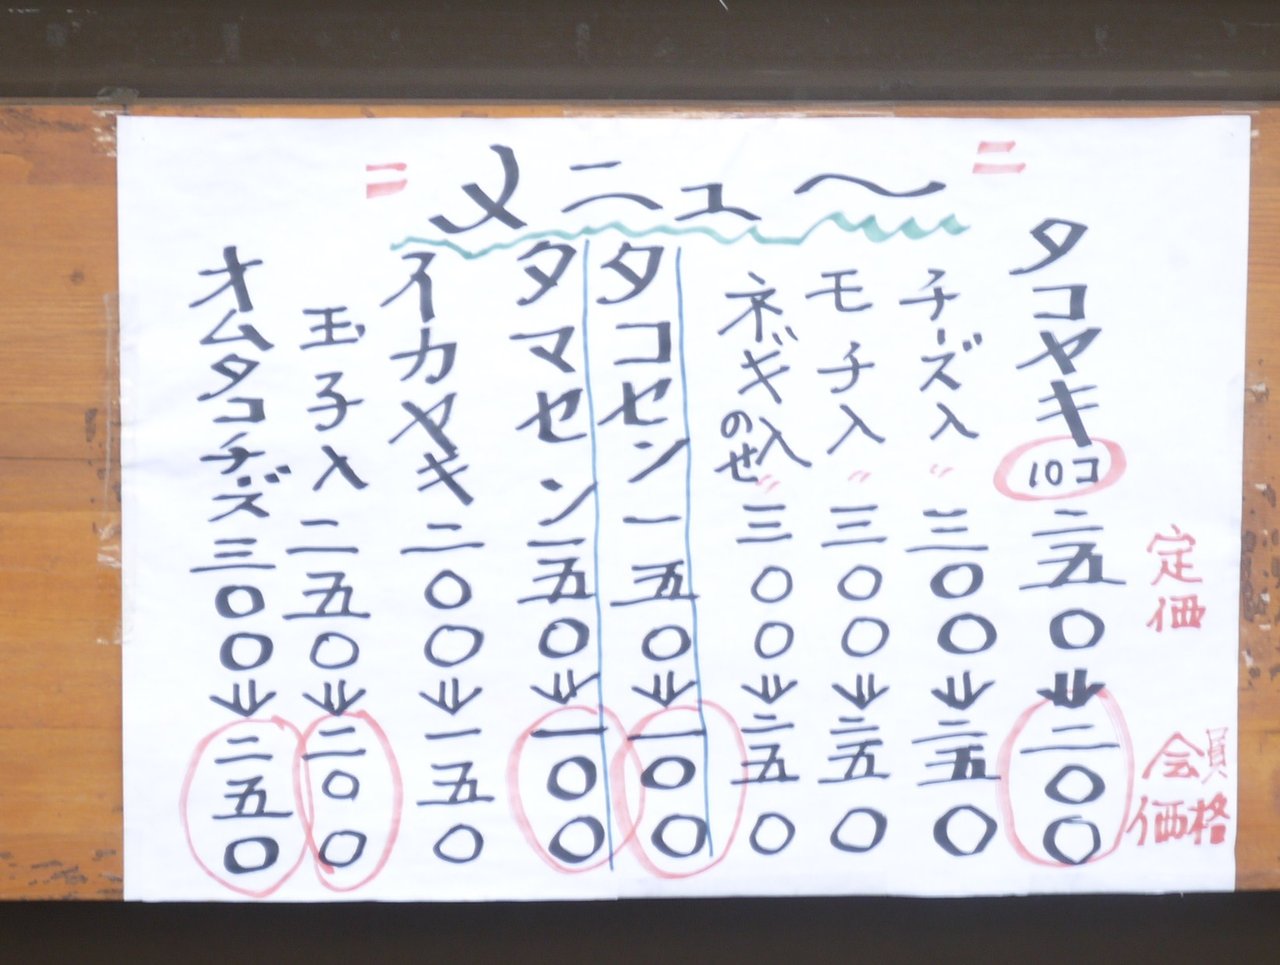 メニュ〜
タコヤキ 10コ 二五〇 ⇓ 二〇〇
チーズ入 〃 三〇〇 ⇓ 二五〇
モチ入 〃 三〇〇 ⇓ 二五〇
ネギ入 のせ 〃 三〇〇 ⇓ 二五〇
タコセン 一五〇 ⇓ 一〇〇
タマセン 一五〇 ⇓ 一〇〇
イカヤキ 二〇〇 ⇓ 一五〇
玉子入 二五〇 ⇓ 二〇〇
オムタコチーズ 三〇〇 ⇓ 二五〇
定価
会員価格